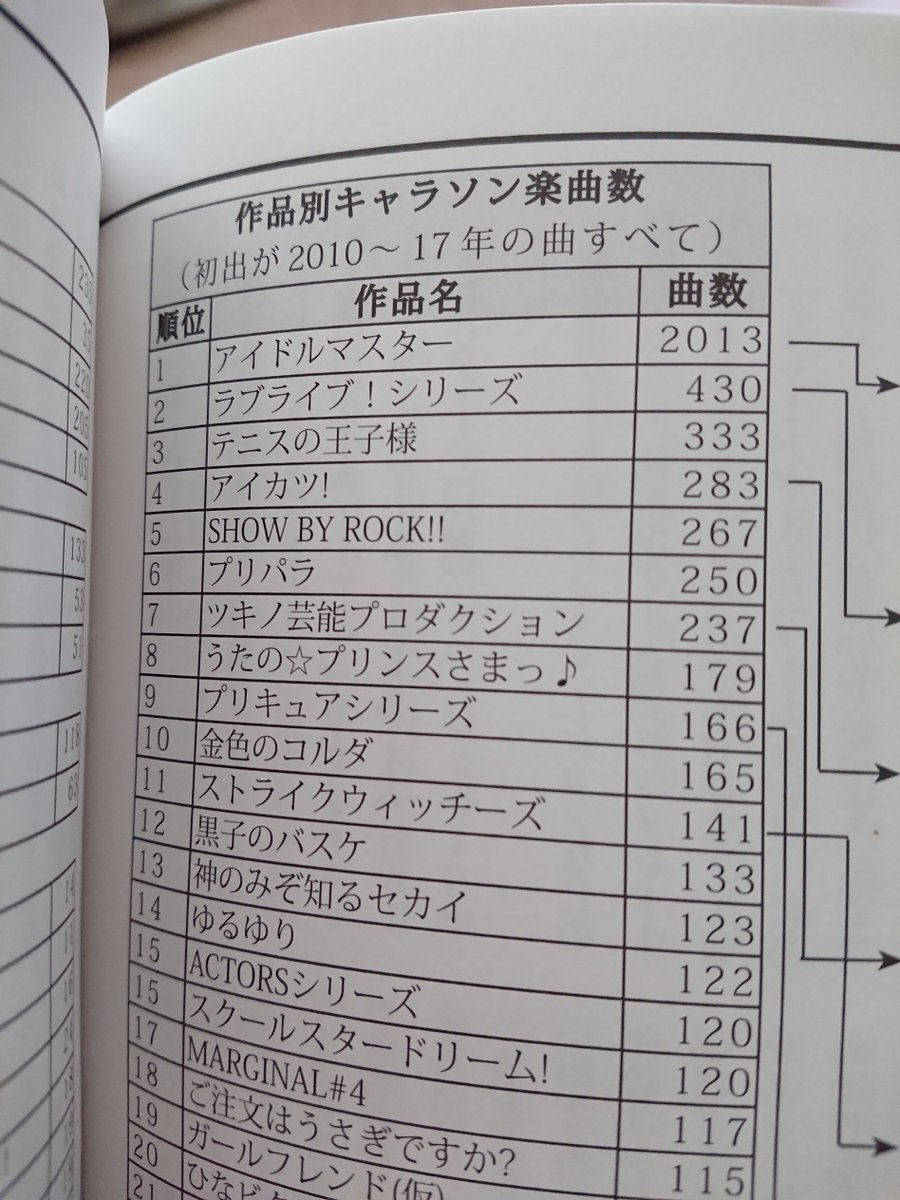 220
205
105
133
53
51
118
63
作品別キャラソン楽曲数
(初出が2010～17年の曲すべて)
順位 作品名 曲数
1 アイドルマスター 2013
2 ラブライブ！シリーズ 430
3 テニスの王子様 333
4 アイカツ! 283
5 SHOW BY ROCK!! 267
6 プリパラ 250
7 ツキノ芸能プロダクション 237
8 うたの☆プリンスさまっ♪ 179
9 プリキュアシリーズ 166
10 金色のコルダ 165
11 ストライクウィッチーズ 141
12 黒子のバスケ 133
13 神のみぞ知るセカイ 123
14 ゆるゆり 122
15 ACTORSシリーズ 120
15 スクールスタードリーム! 120
17 MARGINAL#4 117
18 ご注文はうさぎですか? 115
19 ガールフレンド(仮)
20
21